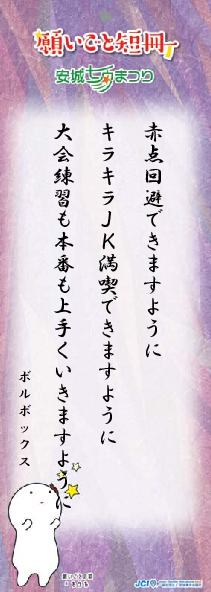 願いごと短冊
安城七夕まつり
赤点回避できますように
キラキラJK満喫できますように
大会練習も本番も上手くいきますように
ボルボックス
JCI